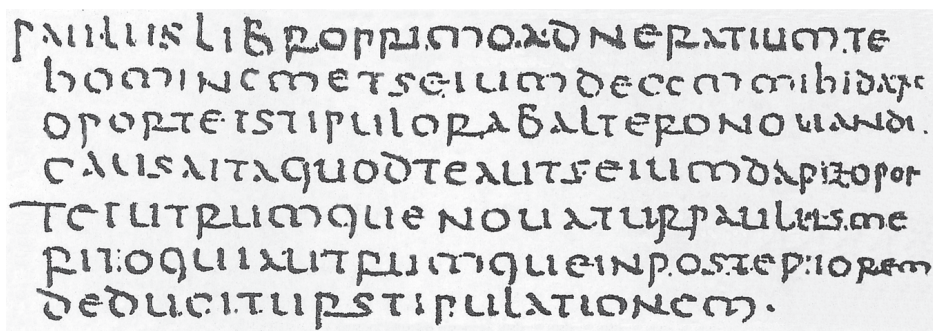 PAULUS LIBRO PRIMO AD NERATIUM TE
HOMINEM ET SEIUM DECEM MIHI DARE
OPORTET STIPULOR AB ALTERO NOUANDI
CAUSA ITA QUOD TE AUT SEIUM DARE OPOR
TET UTRUMQUE NOUATUR PAULUS ME
RITO QUIA UTRUMQUE IN POSTERIOREM
DEDUCITUR STIPULATIONEM.